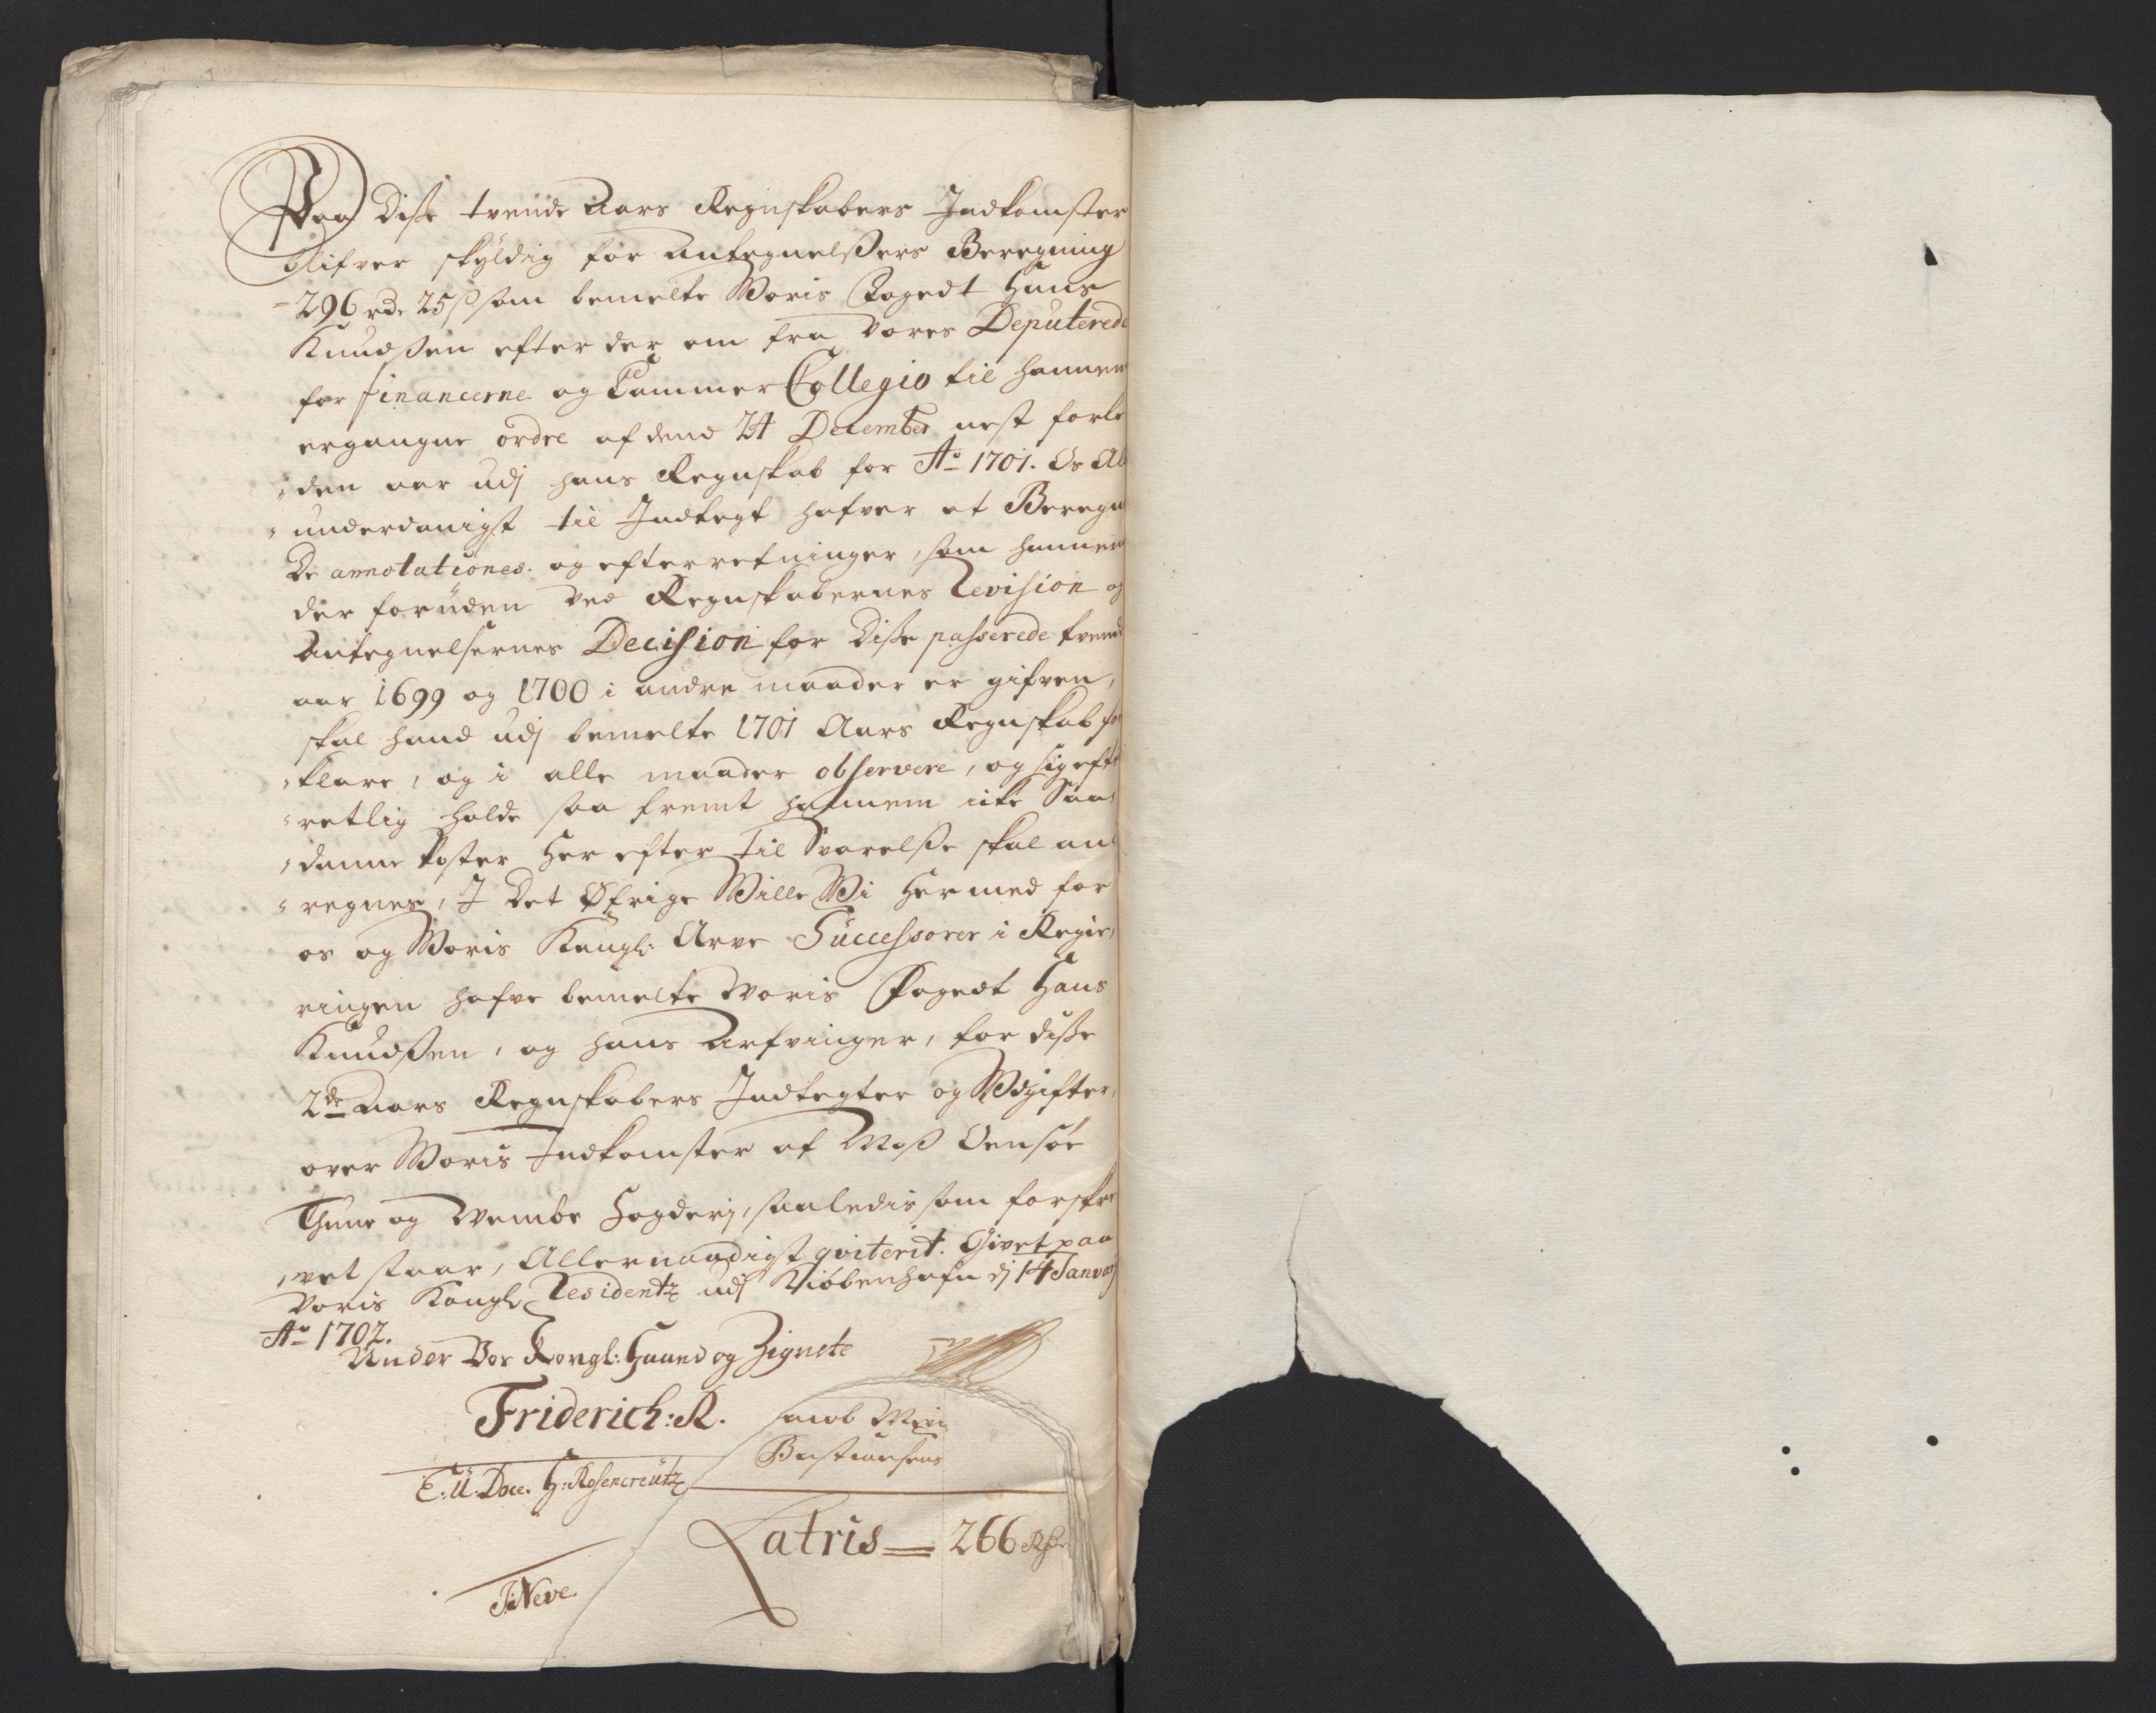 Paa Disse tvende Aars Regnskabers Indkomster
blifver skÿldig for Antegnelssers Beregning
296 rdr 25 ß som bemelte Woris Fogedt Hans
Knudssen efter der om fra vores Deputerede
for financerne og Cammer Collegio til hannem
ergangne ordre af dend 24 December nest forle
den aar udj hans Regnskab for Ao 1701. Os Al
underdanigst til Indtegt hafver at Beregne
De annotationes. og efterretninger, som hannem
der foruden ved Regnskabernes Revision og
Antegnelsernes Decision for Disse passerede tvende
aar 1699 og 1700 i andre maader er gifven,
skal hand udj bemelte 1701 Aars Regnskab for
klare, og i alle maader observere, og sig efter
retlig holde saa fremt hannem icke Saa
danne Poster Her efter til Svarelsse skal an
regnes, I Det Øfrige Wille Wi Hermed for
os og Woris Kongl: Arve Successorer i Regie
ringen hafve bemelte Woris Fogedt Hans
Knudssen, og hans Arfvinger, for disse
2de Aars Regnskabers Indtegter og Udgifter,
over Woris Indkomster af Moss Onsöe
Thune og Wembe Fogderj, saaledis som forskre
vet staar, Allernaadigst qviterit. Givet paa
Voris Kongl. Residentz udj Kiöbenhafn dj 14 Januarj
Ao 1702.
Under Vor Kongl: Haand og Zignete
Friderich: R.
Jacob
Bastiansens
C: U: Doce. H: Rosencreutz
Latris = 266 Rdr
J: Neve.